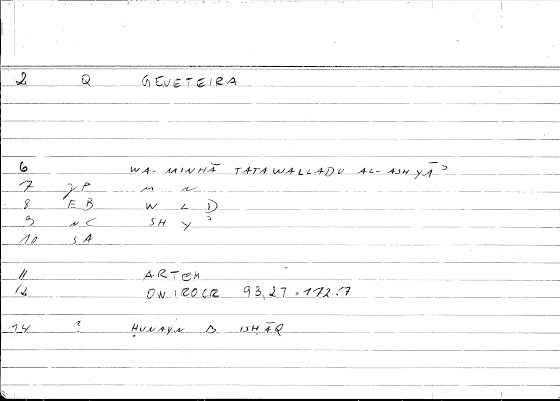 2 Q GENETEIRA
6 WA-MINHĀ TATAWALLADU AL-ASHYĀʾ
7 JP M N
8 EB W L D
9 NC SH Y ʾ
10 SA
11 ARTEM
12 ONIROCR 93,27 = 172.7
14 ? ḤUNAYN B ISḤĀQ